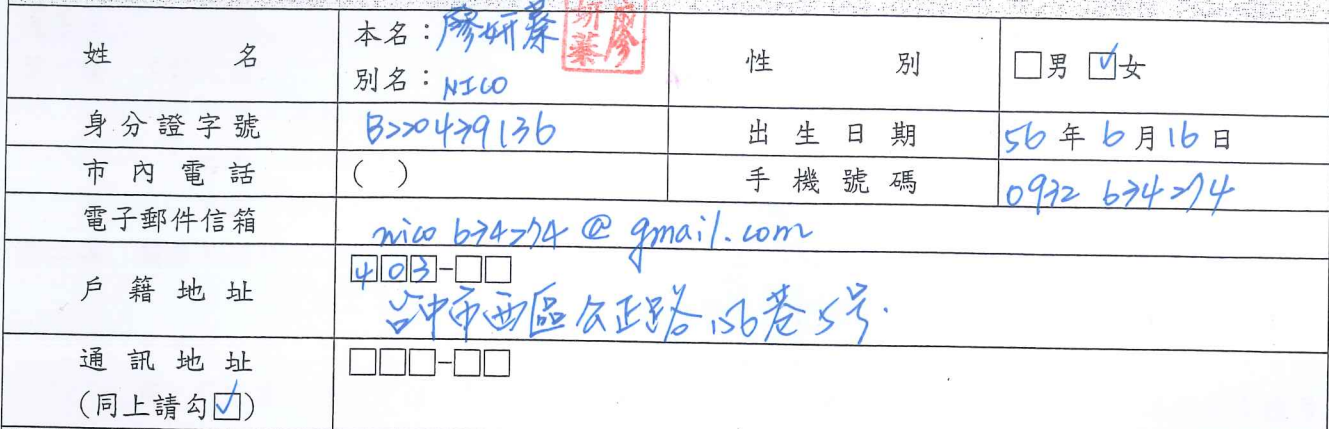 姓名 本名：廖妍蓁 性別 □男 ☑女
別名：NICO
身分證字號 B220439136 出生日期 56年6月16日
市內電話 ( ) 手機號碼 0932 634274
電子郵件信箱 nico634274@gmail.com
戶籍地址 403-□□
台中市西區公正路156巷5号.
通訊地址 □□□-□□
(同上請勾☑)